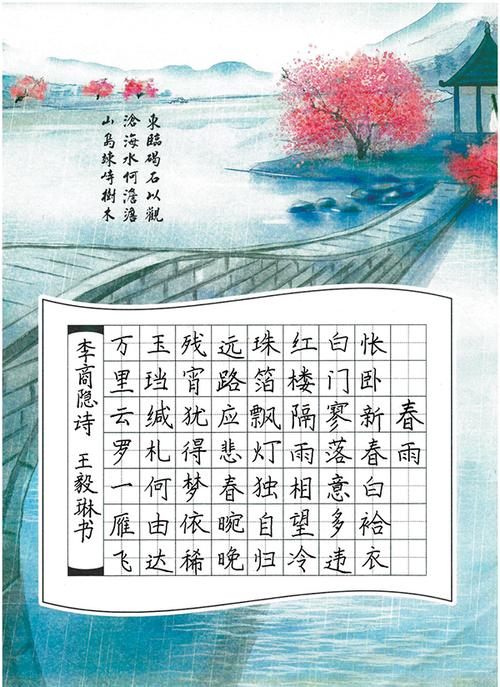 東臨碣石以觀
滄海水何澹澹
山島竦峙樹木
春雨
怅卧新春白袷衣
白门寥落意多违
红楼隔雨相望冷
珠箔飘灯独自归
远路应悲春晼晚
残宵犹得梦依稀
玉珰缄札何由达
万里云罗一雁飞
李商隐诗 王毅琳书